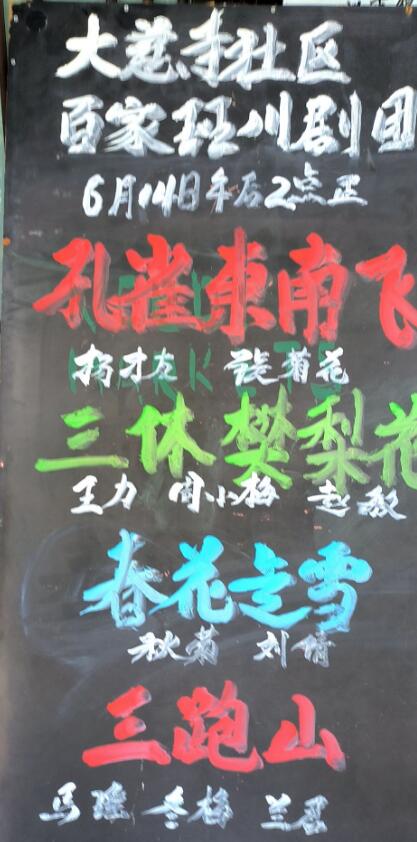 大慈寺社区
百家班川剧团
6月14日午后2点正
孔雀东南飞
杨才左 筱菊花
三休樊梨花
王力 周小梅 赵敏
春花走雪
秋菊 刘倩
三跑山
马瑶 冬梅 兰君